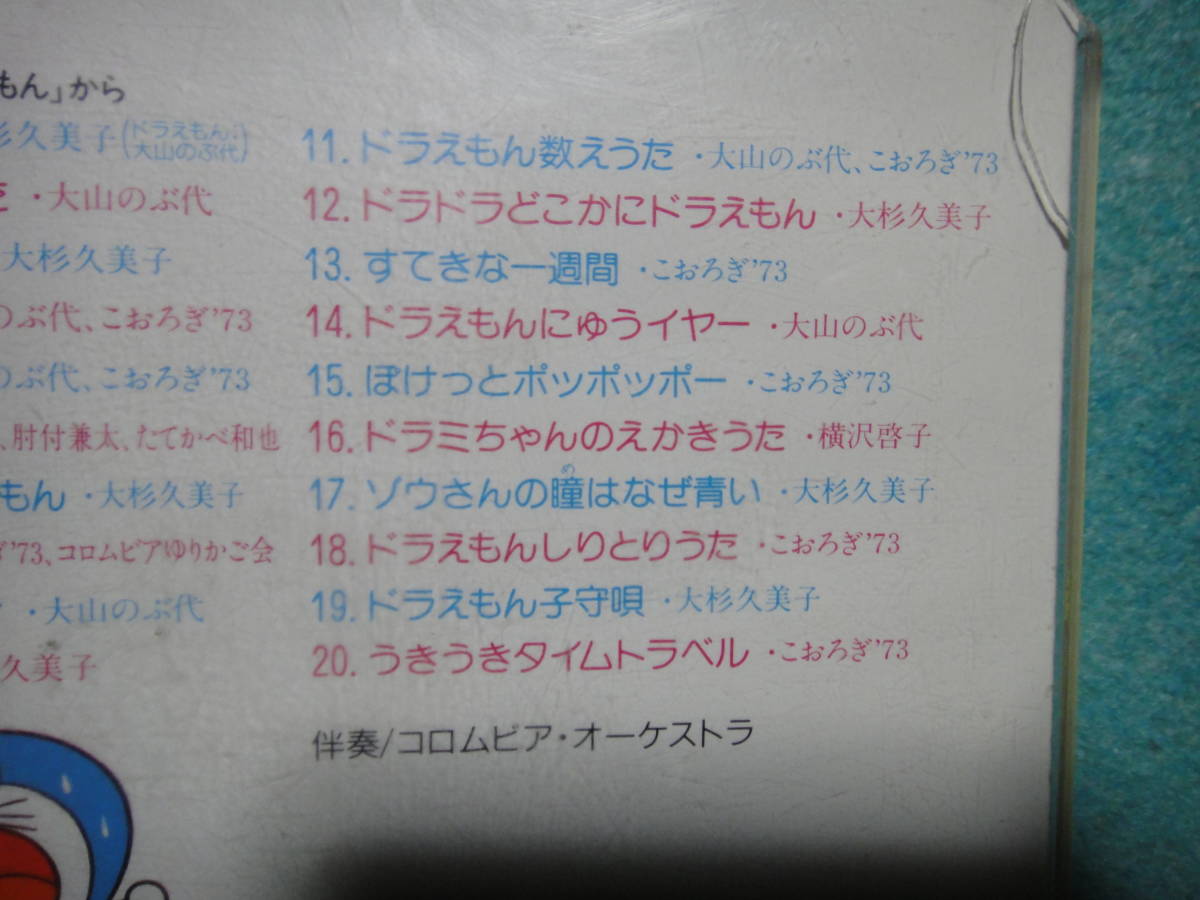 もん」から
杉久美子(ドラえもん:大山のぶ代)
・大山のぶ代
大杉久美子
のぶ代、こおろぎ'73
のぶ代、こおろぎ'73
、肘付兼太、たてかべ和也
もん ・大杉久美子
'73、コロムビアゆりかご会
・大山のぶ代
久美子
11. ドラえもん数えうた ・大山のぶ代、こおろぎ'73
12. ドラドラどこかにドラえもん ・大杉久美子
13. すてきな一週間 ・こおろぎ'73
14. ドラえもんにゅうイヤー ・大山のぶ代
15. ぽけっとポッポッポー ・こおろぎ'73
16. ドラミちゃんのえかきうた ・横沢啓子
め
17. ゾウさんの瞳はなぜ青い ・大杉久美子
18. ドラえもんしりとりうた ・こおろぎ'73
19. ドラえもん子守唄 ・大杉久美子
20. うきうきタイムトラベル ・こおろぎ'73
伴奏/コロムビア・オーケストラ